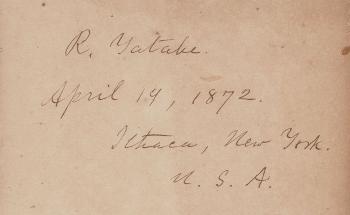 R. Yatabe.
April 19, 1872.
Ithaca, New York.
U. S. A.